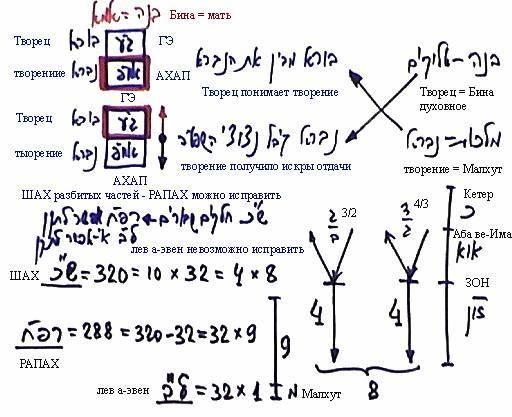 בנה = אמא Бина = мать
Творец בורא ג"ע ГЭ
творениие נברא אח"פ АХАП
ГЭ
Творец בורא ג"ע
тыорение נברא אח"פ
АХАП
בורא מבין את הנברא
Творец понимает творение
בנה - אלוקים
Творец = Бина
духовное
נברא קיבל ניצוצי השפעה
творение получило искры отдачи
מלכות = נברא
творение = Малхут
ШАХ разбитых частей - РАПАХ можно исправить
ש"כ חלקים שבורים רפ"ח אפשר לתקן
ל"ב אי-אפשר לתקן
лев а-эвен невозможно исправить
ШАХ ש"כ = 320 = 10 × 32 = 4 × 8
רפ"ח = 288 = 320 - 32 = 32 × 9
РАПАХ
лев а-эвен ל"ב = 32 × 1
9
מ Малхут
2/2 3/2
3/2 4/3
4
4
8
Кетер
כ
Аба ве-Има
או"א
ЗОН
זו"ן